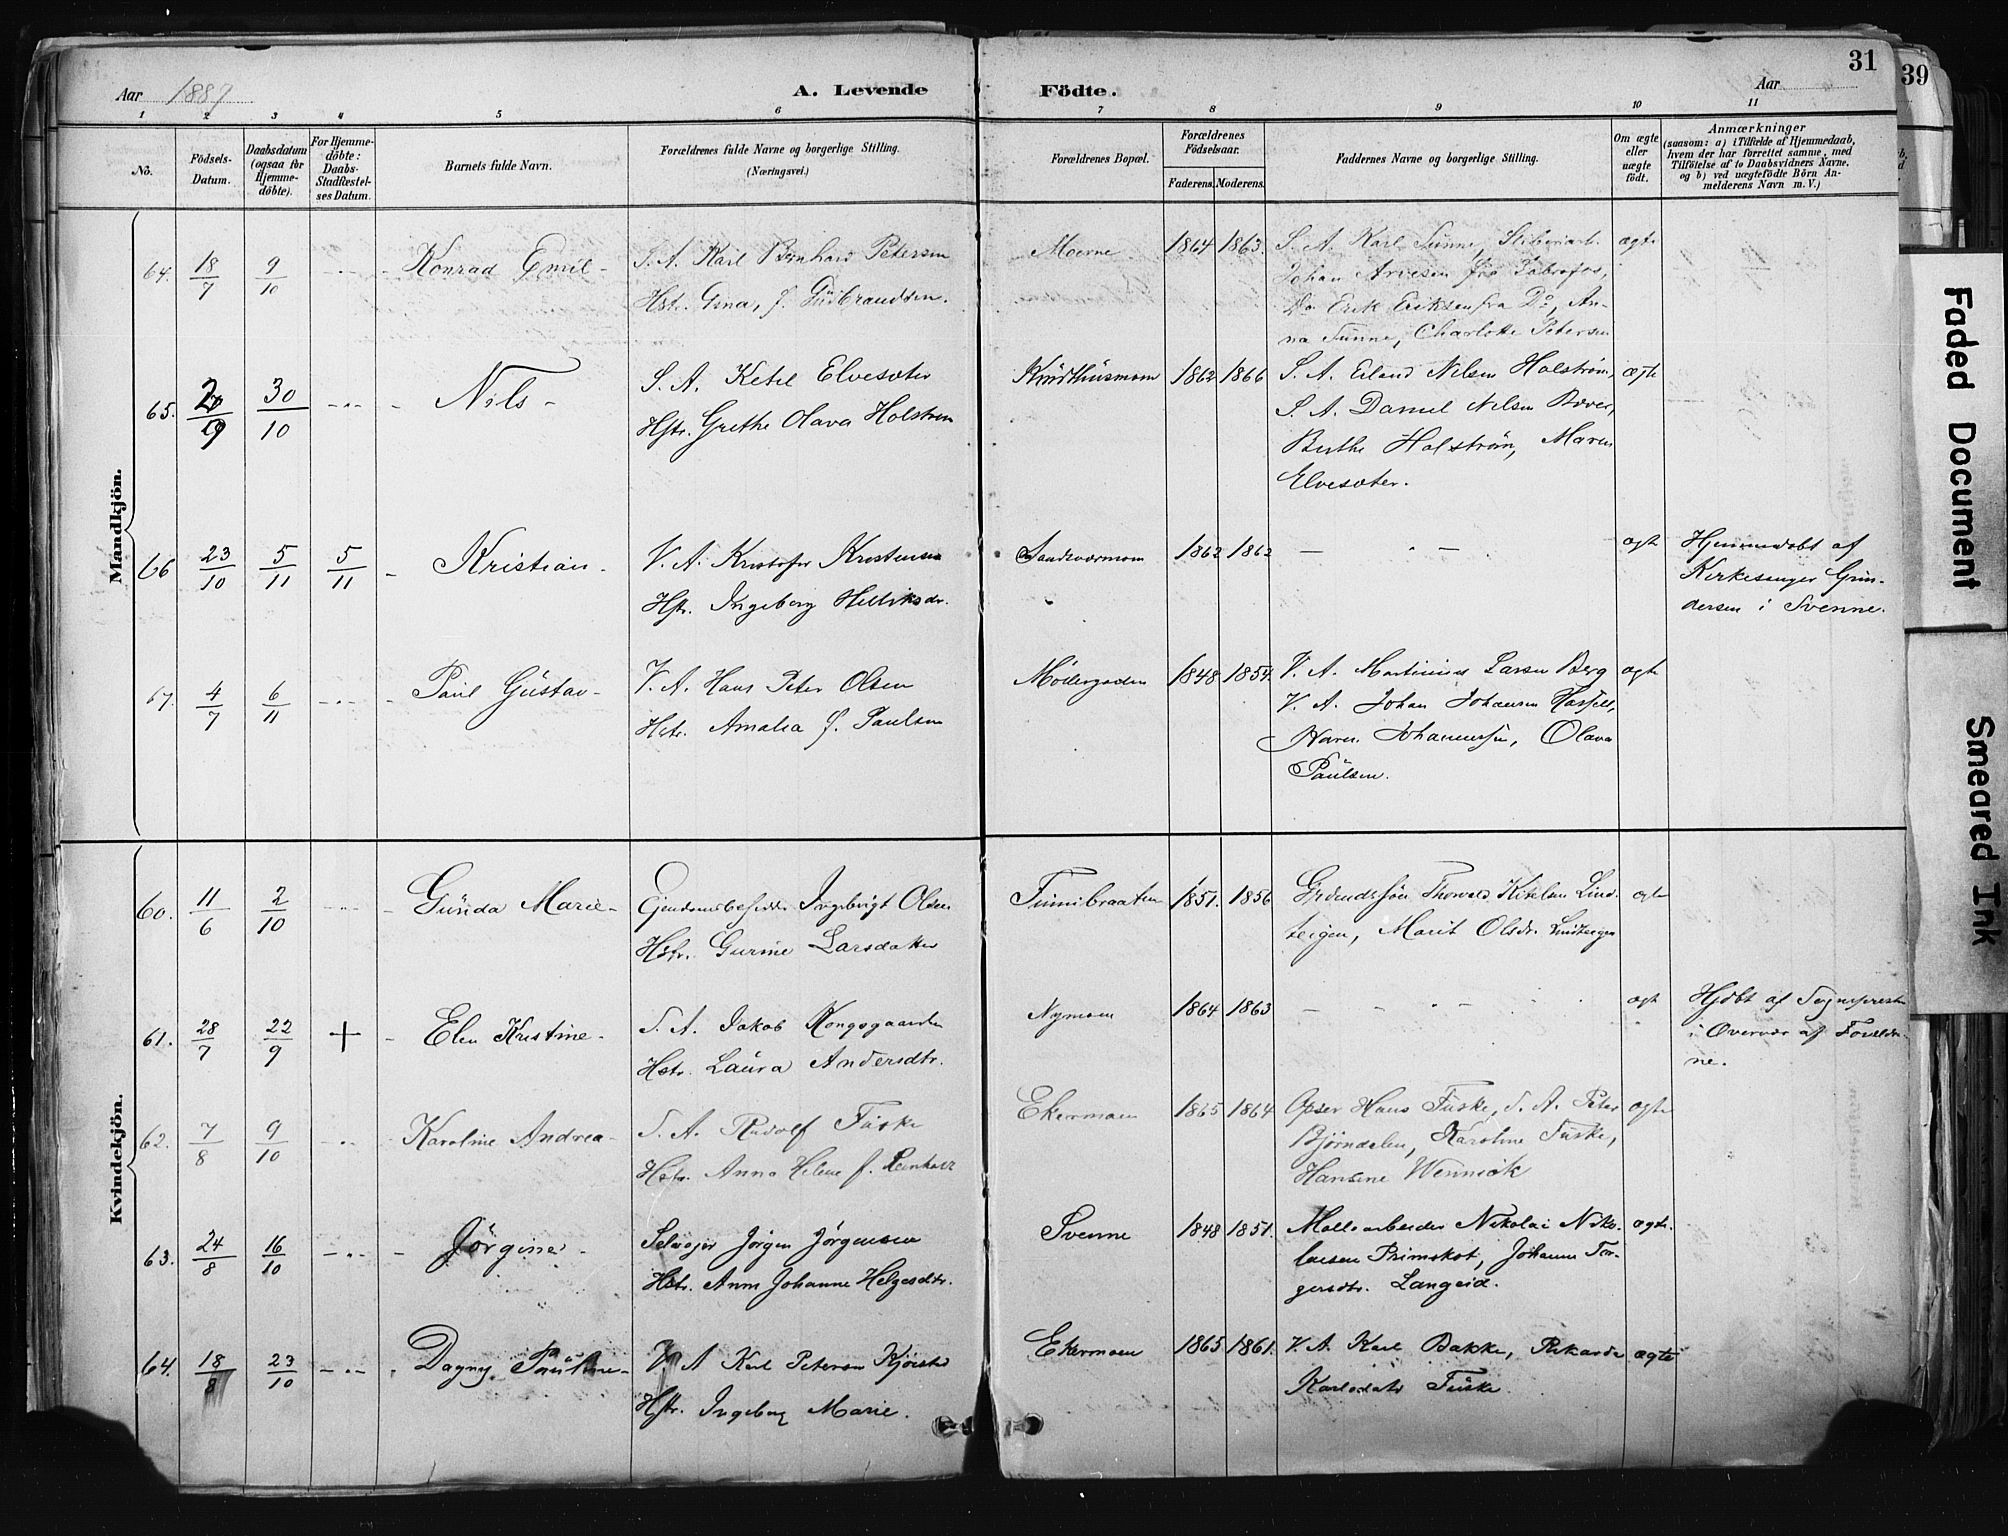 31
39
Aar 1889
A. Levende Födte.
Aar
1 2 3 4 5 6 7 8 9 10 11
No.
Födsels-Datum.
Daabsdatum (ogsaa for Hjemme-döbte).
For Hjemme-döbte: Daabs-Stadfæstel-ses Datum.
Barnets fulde Navn.
Forældrenes fulde Navne og borgerlige Stilling.
(Næringsvei.)
Forældrenes Bopæl.
Forældrenes Födselsaar.
Faderens. Moderens.
Faddernes Navne og borgerlige Stilling.
Om ægte eller uægte födt.
Anmærkninger
(saasom: a) i Tilfælde af Hjemmedaab,
hvem der har forrettet samme, med
Tilföielse af to Daabsvidners Navne.
og b) ved uægtefödte Börn An-
melderens Navn m. V.)
Mandkjön.
64. 18/7 9/10 Konrad Emil
S. A. Karl Bernhard Petersen
Hstr. Gina, f. Gudbrandsen.
Moerne 1864 1863.
S. A. Karl Tunne,
Johan Arvesen fra Labrofos,
Do Erik Eriksen fra Do, An-
na Tunne, Charlotte Petersen
ægte
65. 30/10 Nils
S. A. Ketil Elvesæter
Hstr. Grethe Olava Holstrøm
1862 1866
S. A. Erland Nilsen Holstrøm,
S. A. Daniel Nilsen Bæver,
Berthe Holstrøm, Maren
Elvesæter.
ægte
66 23/10 5/11 5/11 Kristian
V. A. Kristofer Kristensen
Hstr. Ingeborg
Sandsværmoen 1862 1862
ægte
Hjemmedøbt af
Kirkesanger Gun-
dersen i Svenne.
67. 4/7 6/11 Paul Gustav
V. A. Hans Peter Olsen
Hstr. Amalia f. Paulsen
Møllergaden 1848 1854.
V. A. Martinius Larsen Berg
V. A. Johan Johansen
Maren Johannessen, Olava
Paulsen.
ægte
Kvindekjön.
60. 11/6 2/10 Gunda Marie
Ejendomsbesidder Ingebrigt Olsen
Hstr. Gurine Larsdatter
Finnibraaten 1851. 1856
Thorvald Kittelsen Lind-
teigen, Marit Olsdr. Lindteigen
ægte
61. 28/7 22/9 + Elen Kristine
S. A. Jakob Kongsgaarden
Hstr. Laura Andersdtr.
Nymoen 1864 1863
ægt
Hjdbt af Sognepresten
i Overvær af Foreldre-
ne.
62. 7/8 9/10 Karoline Andrea
S. A. Rudolf Fuske
Hstr. Anna Helene f. Reinholt
Ekermoen 1865 1864
Opser Hans Fuske, S. A. Peter
Bjørndalen, Karoline Fuske,
Hansine Wennick
ægte
63. 24/8 16/10 Jörgine
Selveier Jörgen Jörgensen
Hstr. Anne Johanne Helgesdtr.
Svenne 1848 1851.
Møllearbeider Nikolai Niko-
laisen Brimskot, Johanne Tor-
gersdtr. Langeid.
ægte.
64. 18/8 23/10 Dagny Pauline
V. A Karl Petersen Kjørstad
Hstr. Ingeborg Marie.
Ekermoen 1865 1861.
V. A. Karl Bakke, Rikarda
Karlsdatr Fuske.
ægte
Faded Document
Smeared Ink